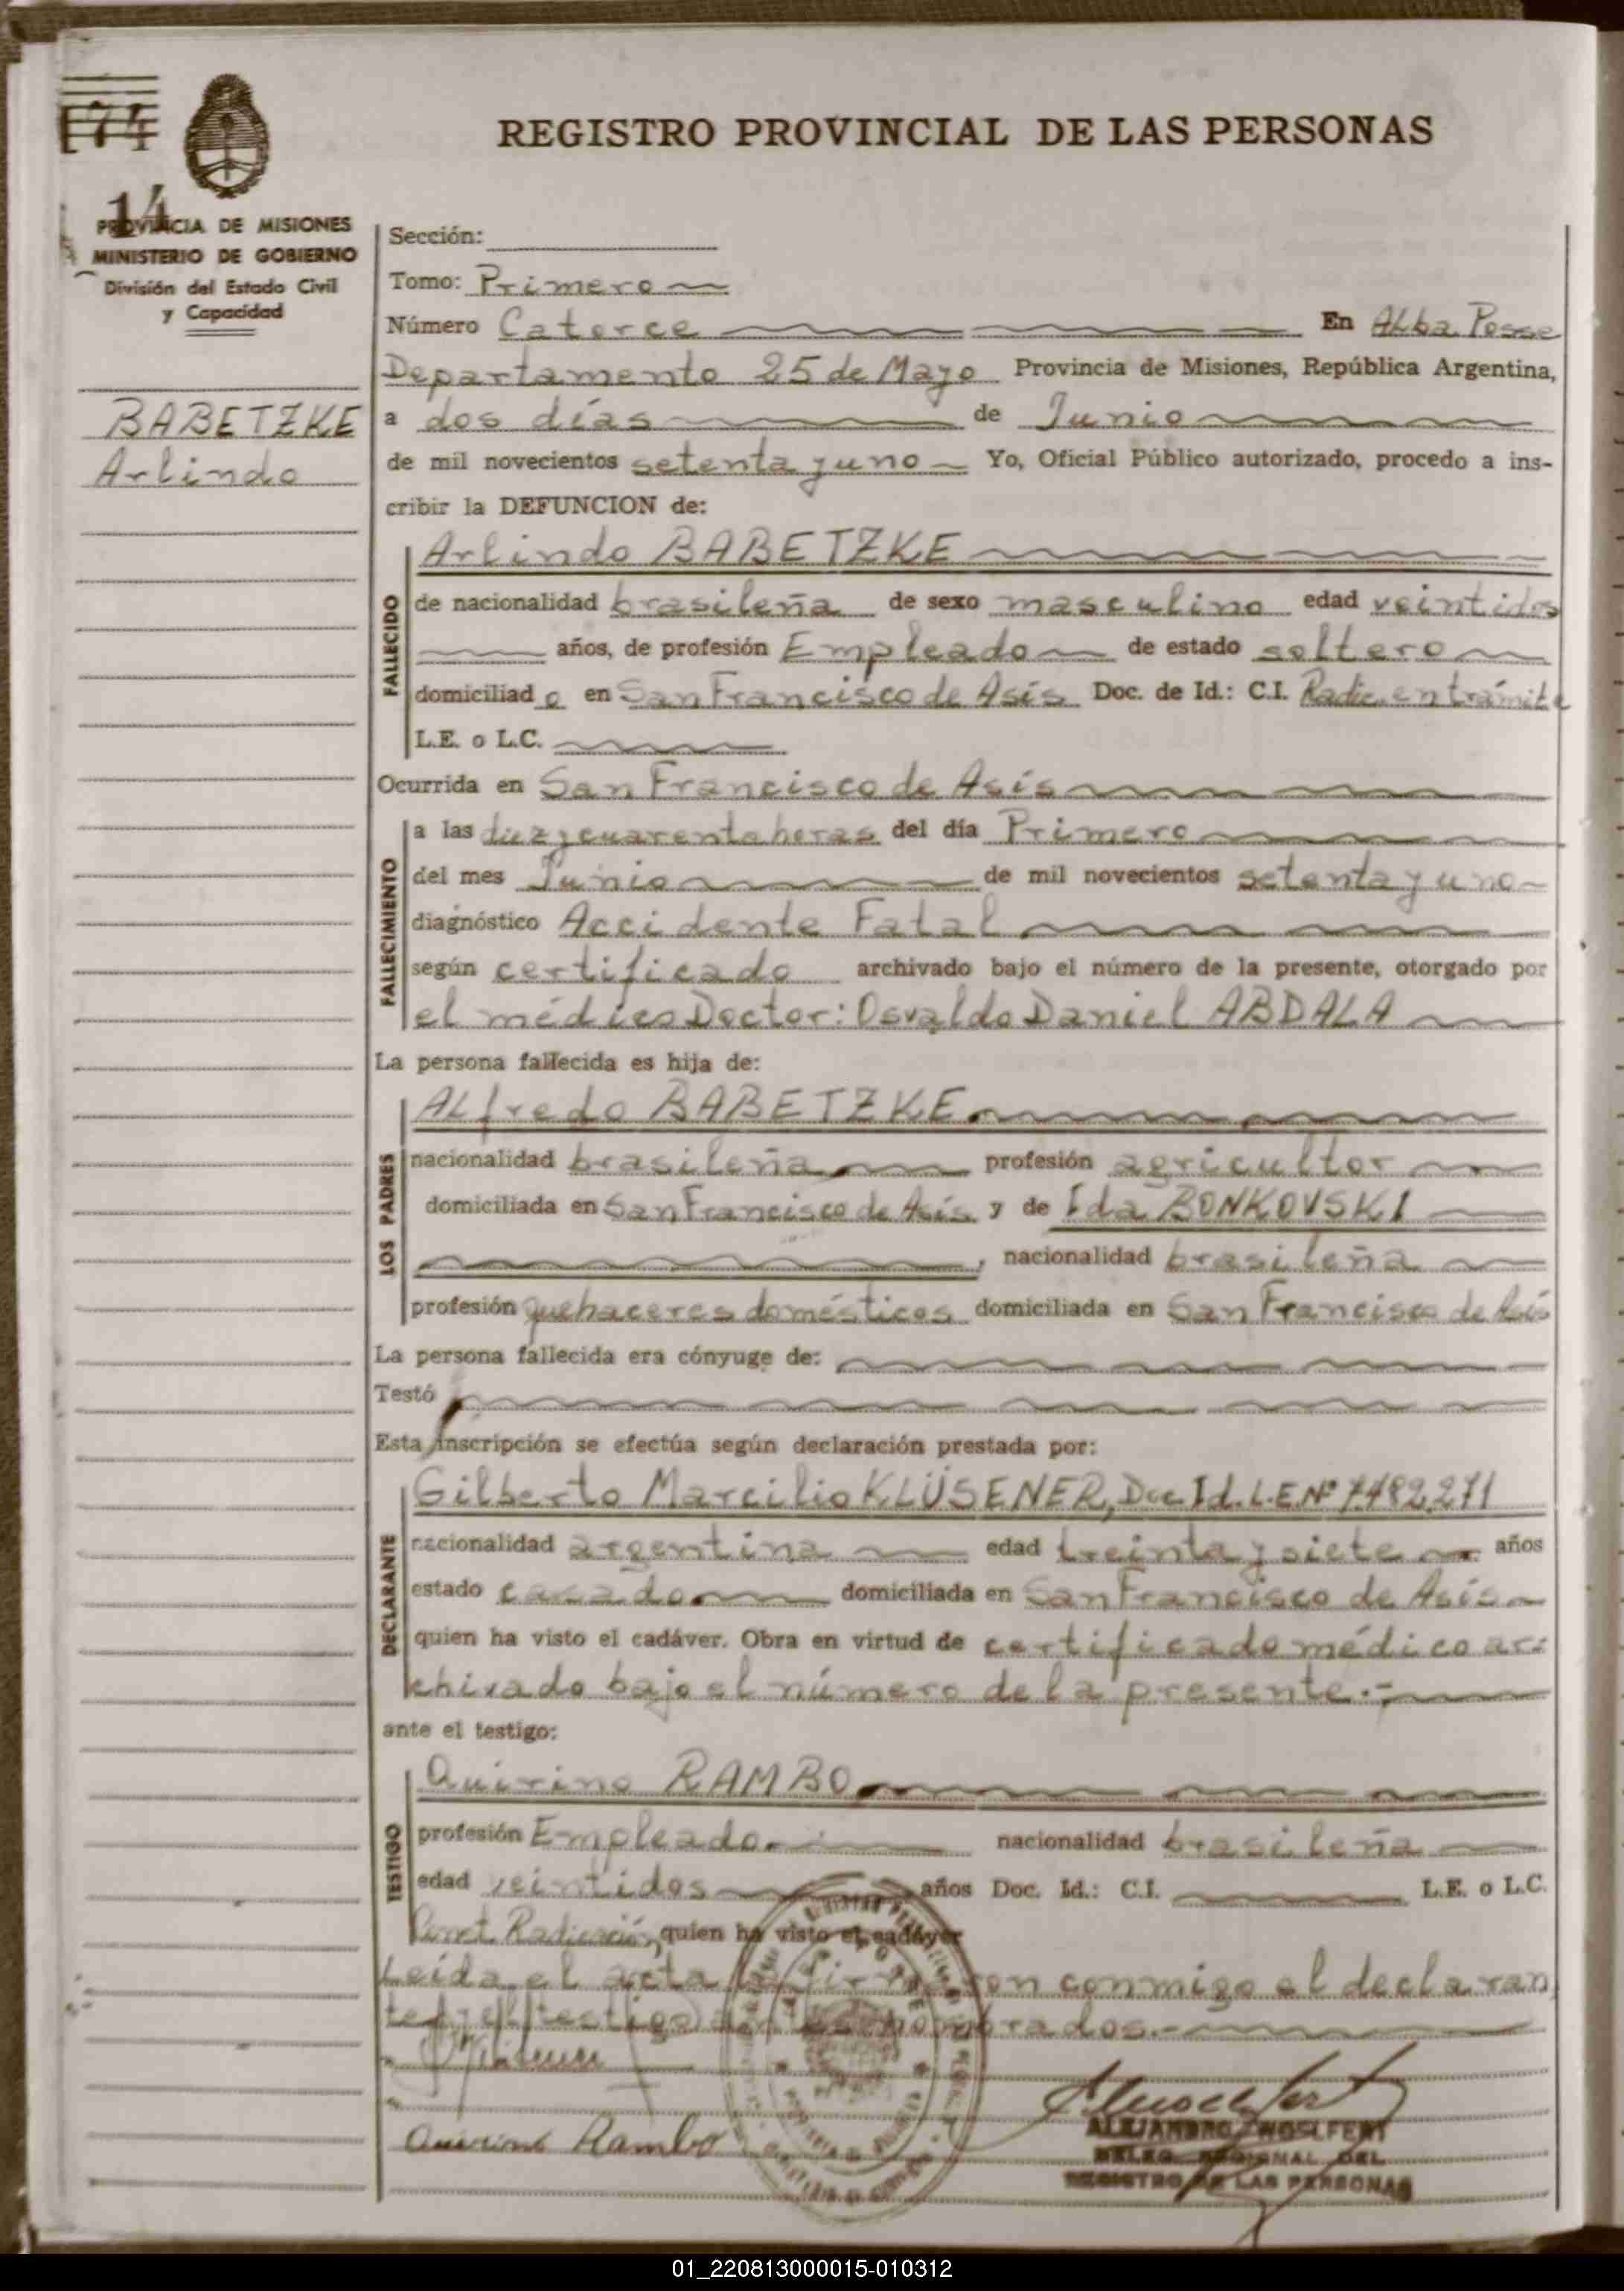 174
REGISTRO PROVINCIAL DE LAS PERSONAS
14
PROVINCIA DE MISIONES
MINISTERIO DE GOBIERNO
División del Estado Civil
y Capacidad
BABETZKE
Arlindo
Sección:
Tomo: Primero
Número Catorce En Alba Posse
Departamento 25 de Mayo Provincia de Misiones, República Argentina,
a dos días de Junio
de mil novecientos setenta y uno Yo, Oficial Público autorizado, procedo a ins-
cribir la DEFUNCION de:
FALLECIDO
Arlindo BABETZKE
de nacionalidad brasileña de sexo masculino edad veintidos
años, de profesión Empleado de estado soltero
domiciliado en San Francisco de Asís Doc. de Id.: C.I. Radic. en trámite
L.E. o L.C.
Ocurrida en San Francisco de Asís
FALLECIMIENTO
a las diez y cuarenta horas del día Primero
del mes Junio de mil novecientos setenta y uno
diagnóstico Accidente Fatal
según certificado archivado bajo el número de la presente, otorgado por
el médico Doctor: Osvaldo Daniel ABDALA
La persona fallecida es hija de:
LOS PADRES
Alfredo BABETZKE
nacionalidad brasileña profesión agricultor
domiciliada en San Francisco de Asís y de Ida BONKOVSKI
, nacionalidad brasileña
profesión quehaceres domésticos domiciliada en San Francisco de Asís
La persona fallecida era cónyuge de:
Testó
Esta inscripción se efectúa según declaración prestada por:
DECLARANTE
Gilberto Marcilio KLÜSENER, Doc Id. L.E Nº 7482,271
nacionalidad argentina edad treinta y siete años
estado casado domiciliada en San Francisco de Asís
quien ha visto el cadáver. Obra en virtud de certificado médico ar-
chivado bajo el número de la presente.-
ante el testigo:
TESTIGO
Quirino RAMBO
profesión Empleado nacionalidad brasileña
edad veintidos años Doc. Id.: C.I. L.E. o L.C.
Radicación, quien ha visto el cadáver
Leída el acta la firmaron conmigo el declaran
te y el testigo antes nombrados.-
Quirino Rambo
ALEJANDRO WOSLFERT
DELEG. REGIONAL DEL
REGISTRO DE LAS PERSONAS
01_220813000015-010312